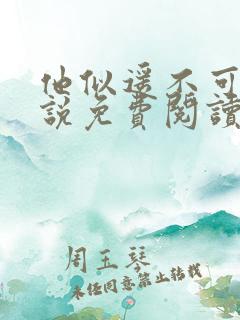 他似遥不可
說免費閱讀
周玉琴
未经同意禁止转载